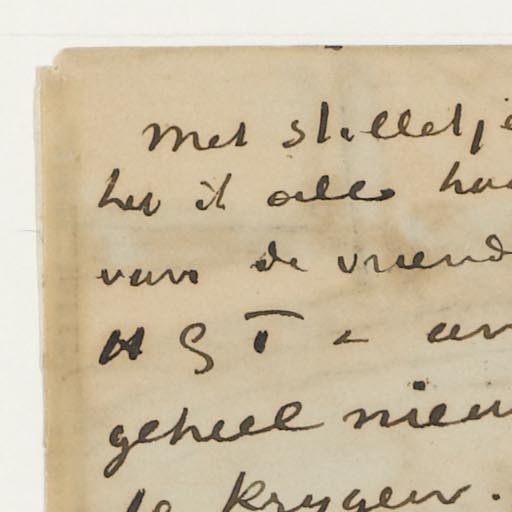 Met stilletje
heb ik alles
van de vriend
H G T - en
geheel nieu
te krygen.